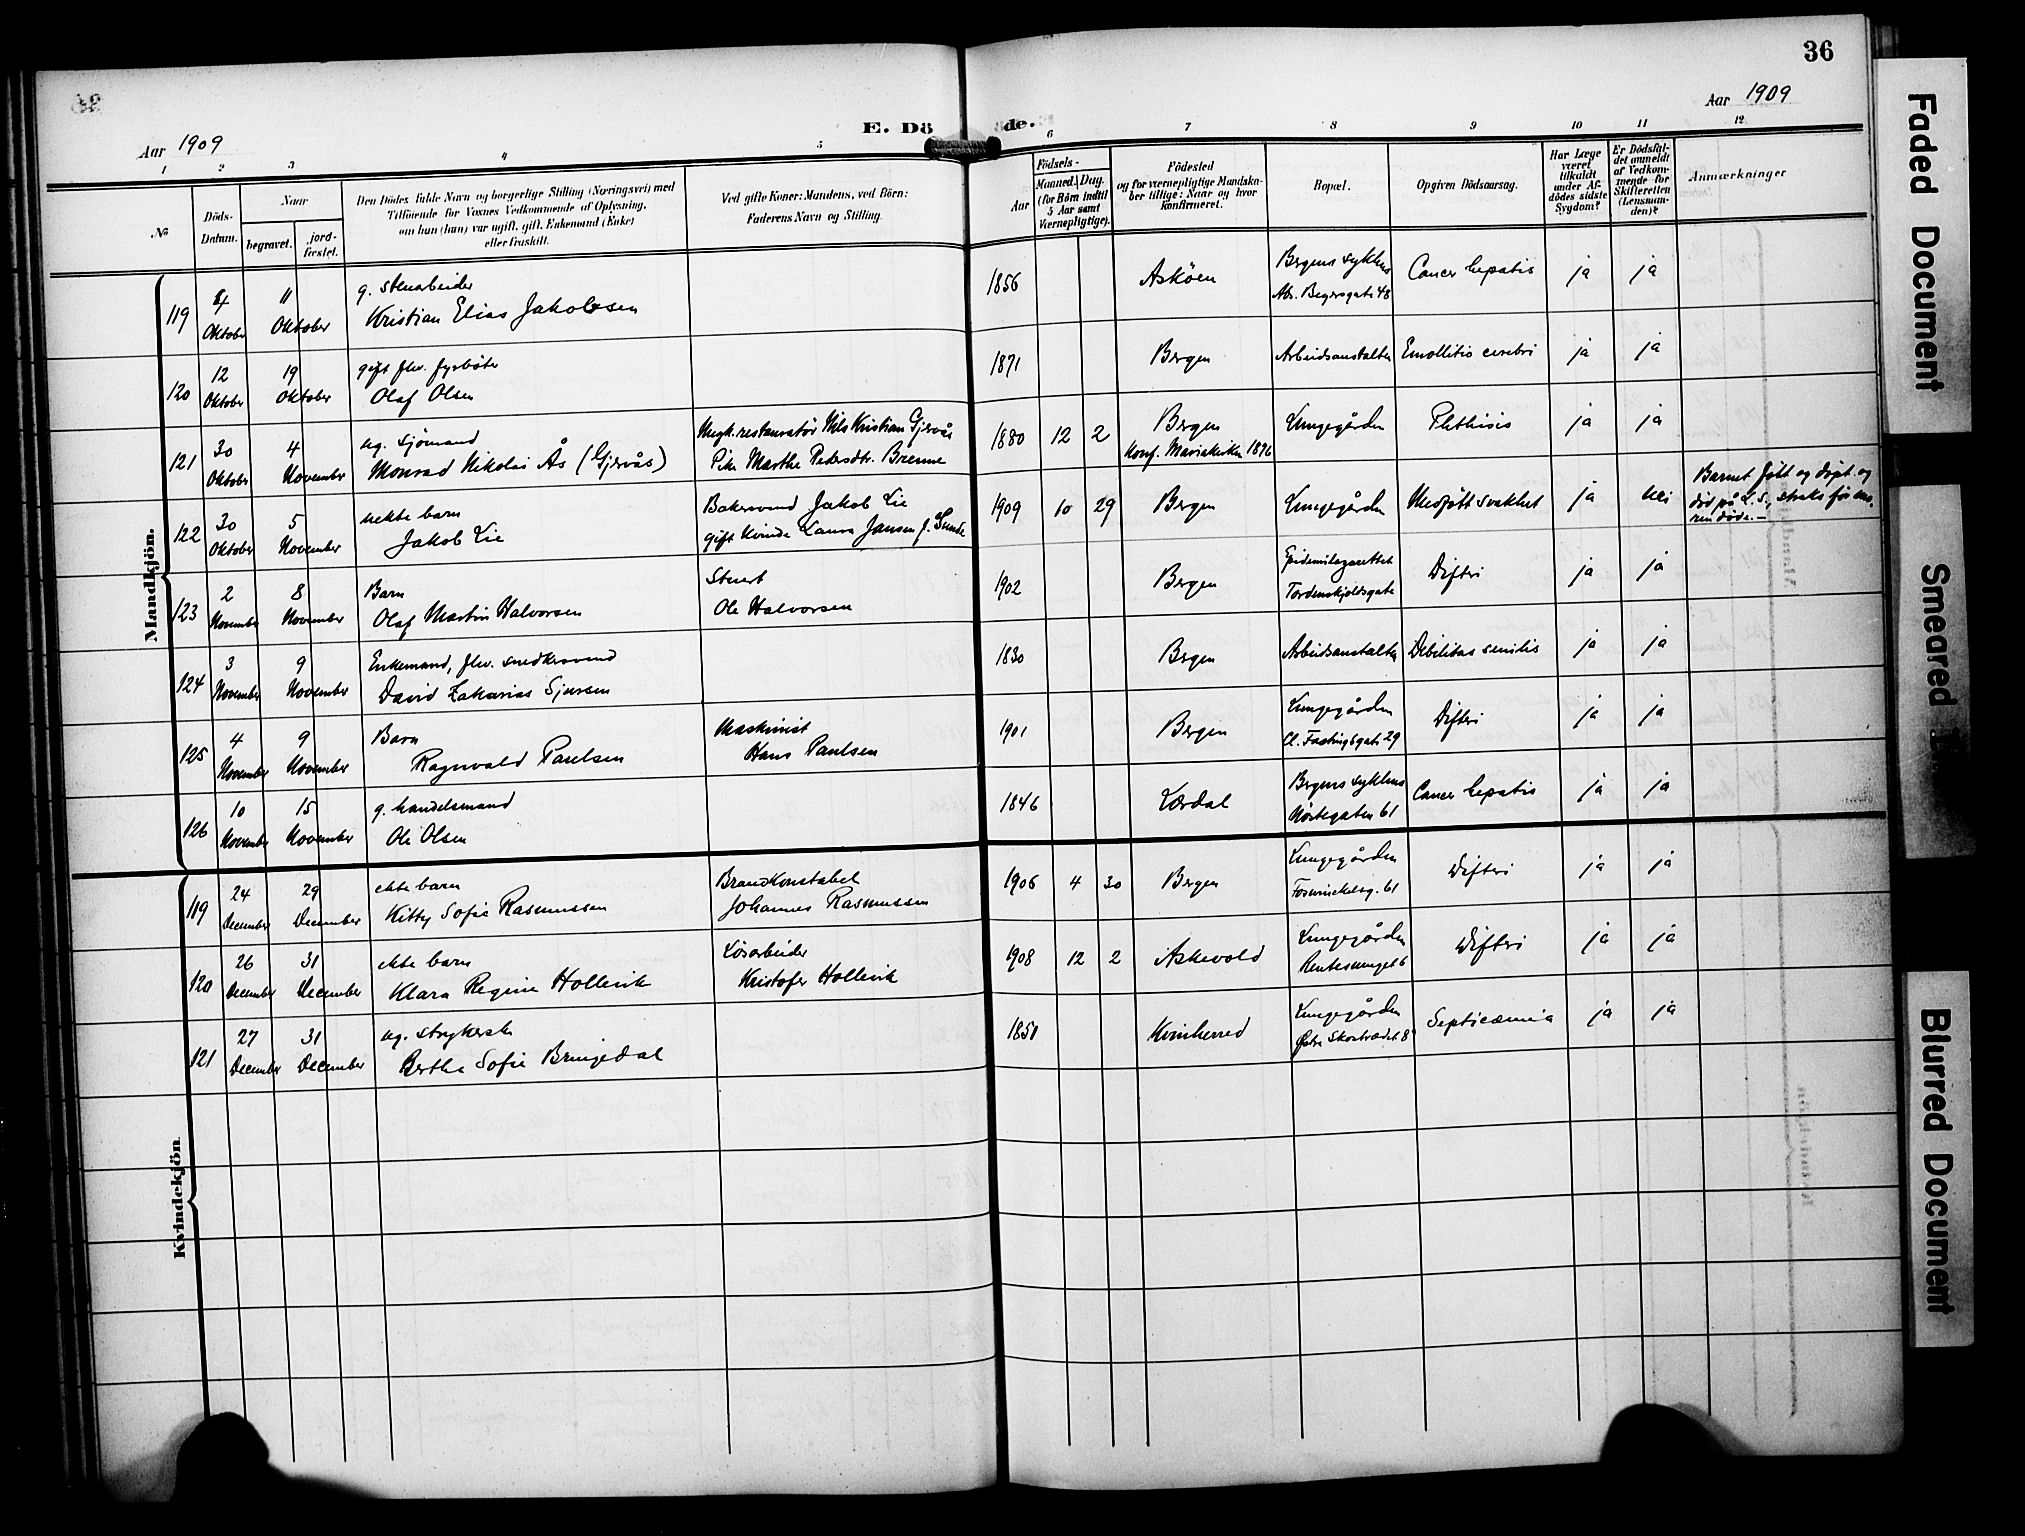 36
Aar 1909
E. Döde.
Aar 1909
1 2 3 4 5 6 7 8 9 10 11 12
No
Döds-Datum.
Naar
begravet.
jord-fæstet.
Den Dödes fulde Navn og borgerlige Stilling (Næringsvei) med
Tilföiende for Voxnes Vedkommende af Oplysning,
om han (hun) var ugift, gift, Enkemand (Enke)
eller fraskilt.
Ved gifte Koner: Mandens, ved Börn:
Faderens Navn og Stilling.
Födsels-
Aar
Maaned. Dag.
(for Börn indtil
5 Aar samt
Værnepligtige).
Födested
og for værnepligtige Mandska-
ber tillige: Naar og hvor
konfirmeret.
Bopæl.
Opgiven Dödsaarsag.
Har Læge
været
tilkaldt
under Af-
dödes sidste
Sygdom?
Er Dödsfal-
det anmeldt
af Vedkom-
mende for
Skifteretten
(Lensman-
den)?
Anmærkninger
Mandkjön.
119 4 Oktober 11 Oktober g. stenarbeider
Kristian Elias Jakobsen 1856 Asköen Bergens sykehus
48 Cancer hepatis ja ja
120 12 Oktober 19 Oktober gift flv. fyrböter
Olaf Olsen 1871 Bergen Arbeidsanstalten Emollitis cerebri ja ja
121 30 Oktober 4 November ug. sjömand
Monrad Nikolai Ås (Gjervås) restauratör Nils Kristian Gjervås
Pike Marthe Pedersdtr. Brenne 1880 12 2 Bergen
Konf. Mariakirken 1896 Lungegården Phthisis ja ja
122 30 Oktober 5 November uekte barn
Jakob Lie Bakersvend Jakob Lie
gift kvinde Laura Jansen f. Sunde 1909 10 29 Bergen Lungegården Medfött svakhet ja nei Barnet födt og döpt og
död på L. S., straks för mo-
ren döde.—
123 2 November 8 November Barn
Olaf Martin Halvorsen Stuert
Ole Halvorsen 1902 Bergen Epidemilazarettet
Tordenskjoldsgate Difteri ja ja
124 3 November 9 November Enkemand, flv. snedkersvend
David Zakarias Sjursen 1830 Bergen Arbeidsanstalten Debilitas senilis ja ja
125 4 November 9 November Barn
Ragnvald Paulsen Maskinist
Hans Paulsen 1901 Bergen Lungegården
Cl. Fastingsgate 29 Difteri ja ja
126 10 November 15 November g. handelsmand
Ole Olsen 1846 Lærdal Bergens sykehus
Nöstegaten 61 Cancer hepatis ja ja
Kvindekjön
119 24 December 29 December ekte barn
Kitty Sofie Rasmussen Brandkonstabel
Johannes Rasmussen 1906 4 30 Bergen Lungegården
Fosswinckelsg. 61 Difteri ja ja
120 26 December 31 December ekte barn
Klara Regine Hollevik Lösarbeider
Kristofer Hollevik 1908 12 2 Askevold Lungegården
6 Difteri ja ja
121 27 December 31 December ug. strykerske
Berthe Sofie Bringedal 1851 Kvinherred Lungegården
Östre Skostrædet 8 Septicæmia ja ja
Faded Document
Smeared
Blurred Document